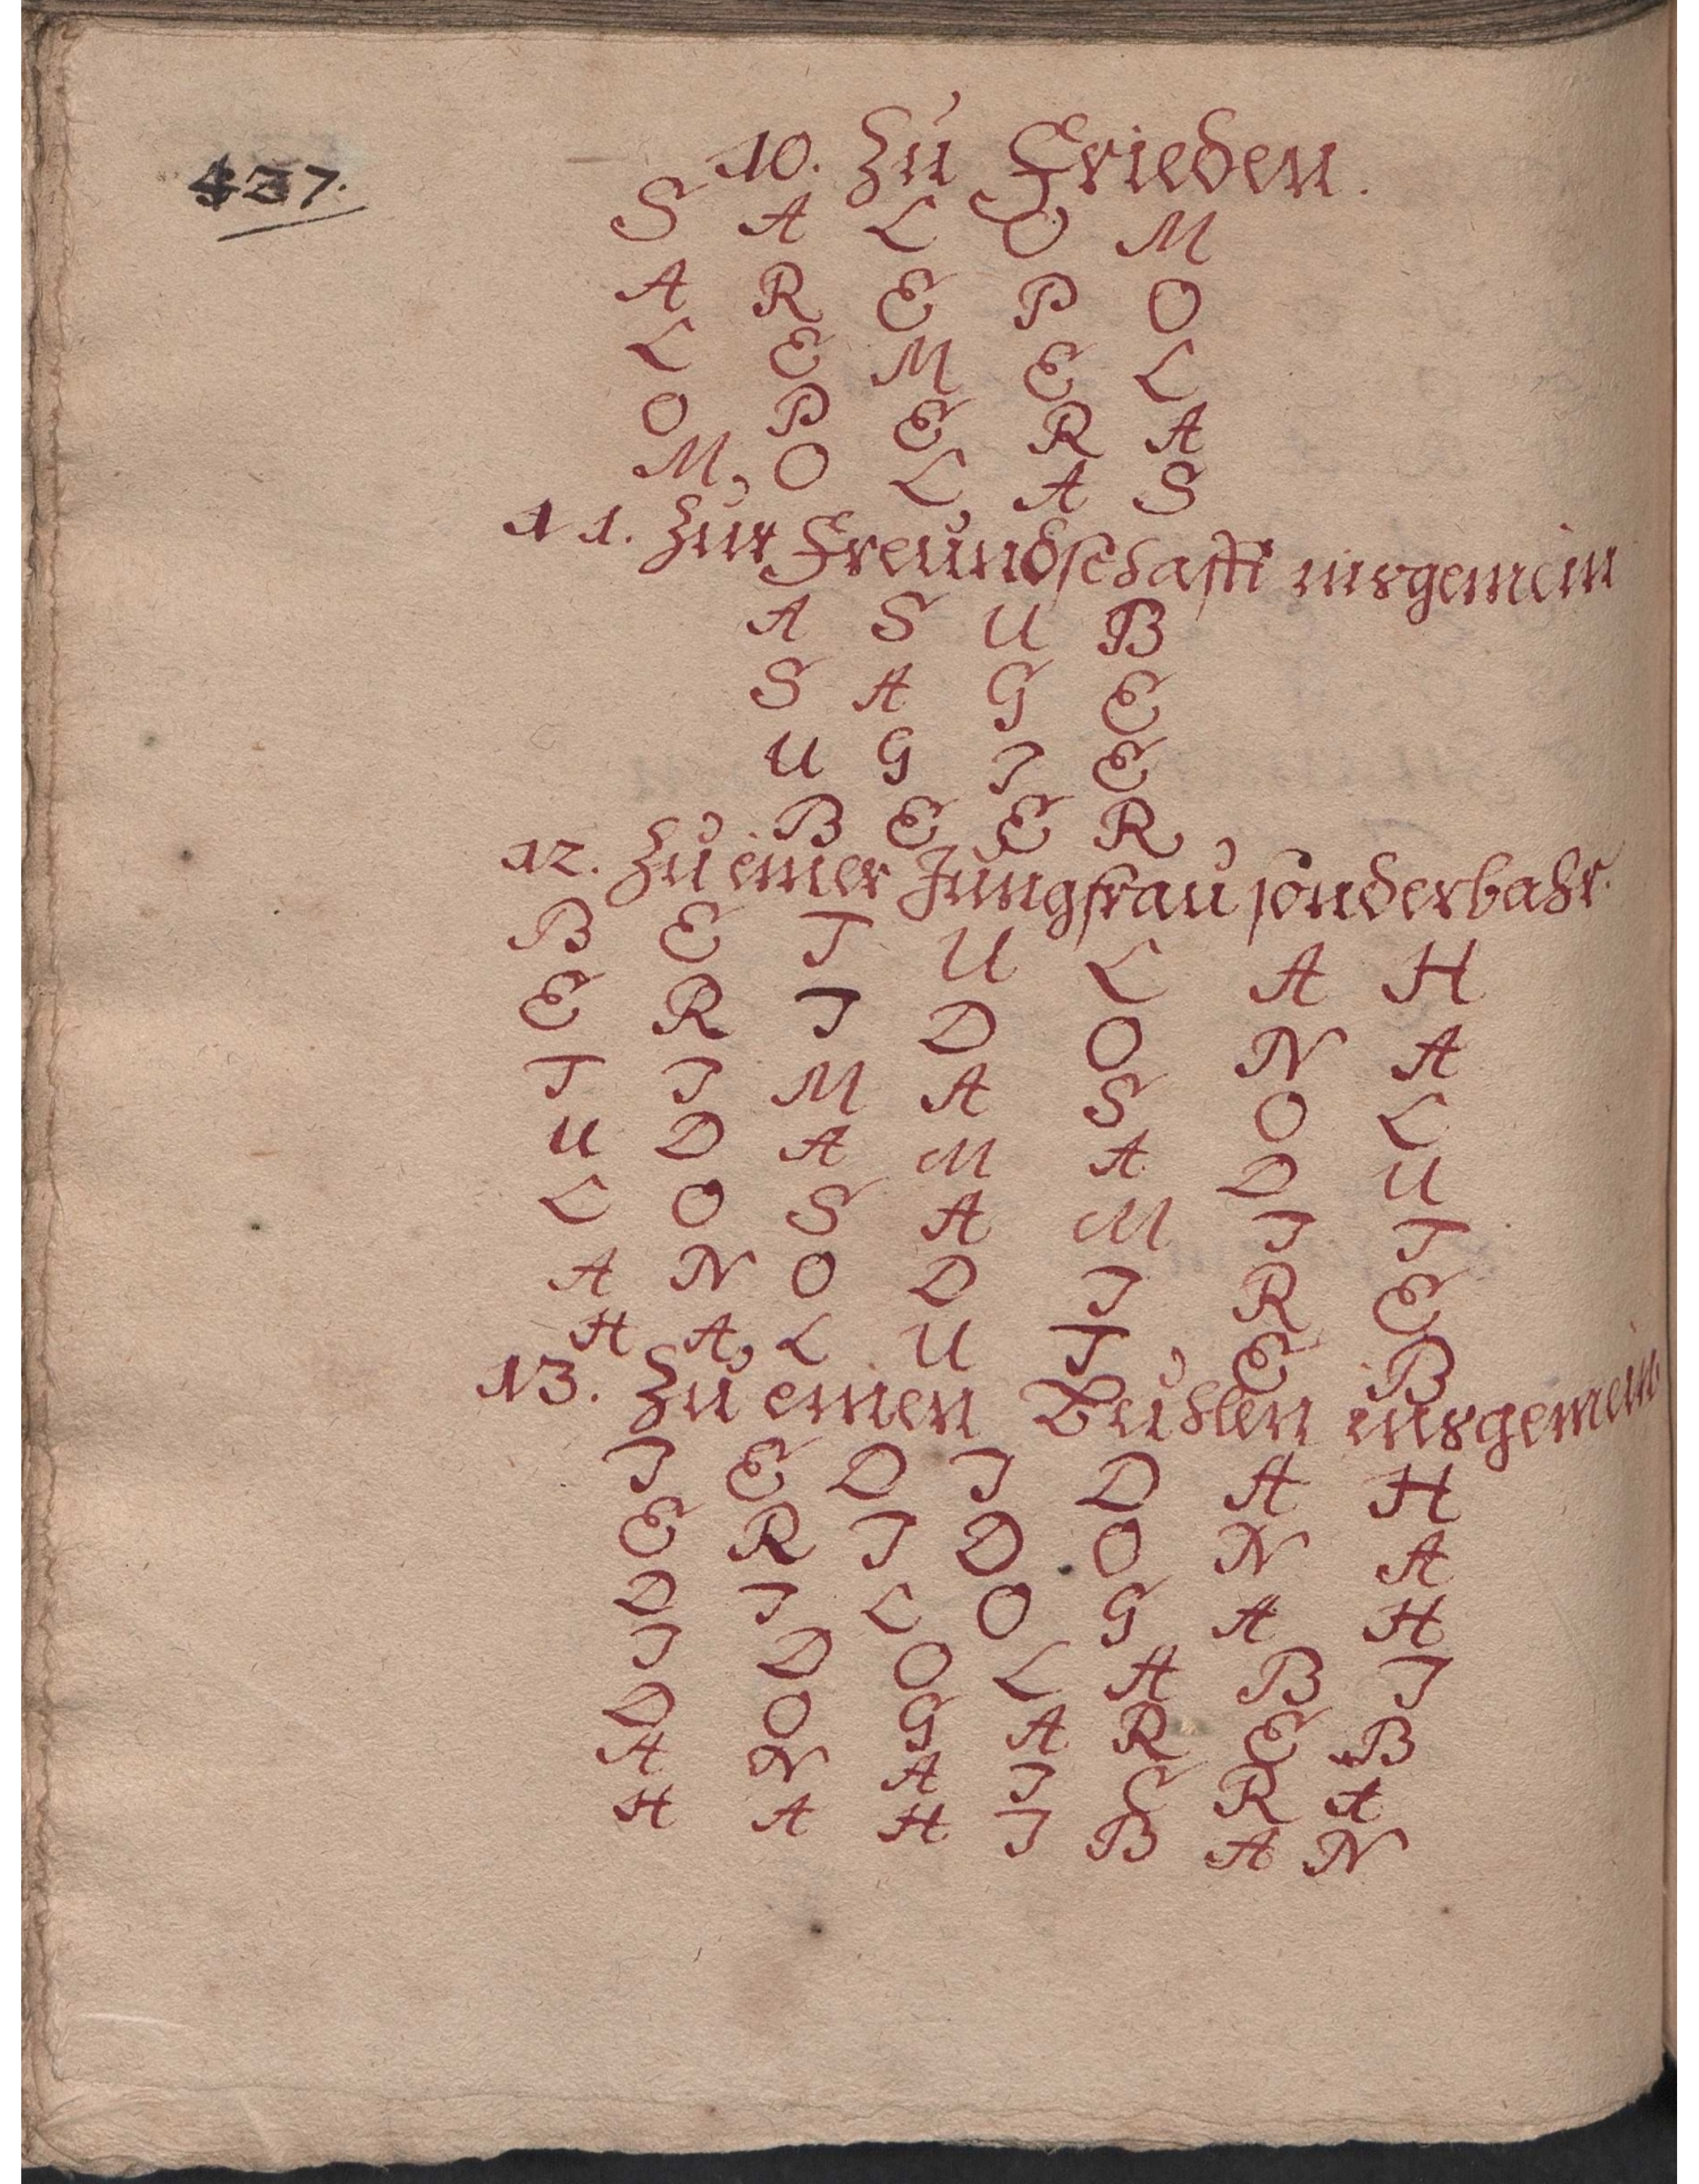 437.
10. Zu Frieden.
S A L O M
A R E P O
L E M E L
O P E R A
M O L A S
11. Zur Freundschafft insgemein
A S U B
S A G E
U G I E
B E E R
12. Zu einer Jungfrau sonderbahr.
B E T U L A H
E R I D O N A
T I M A S O L
U D A M A D U
L O S A M I T
A N O D I R E
H A L U T E B
13. Zu einen Buhlen insgemein
I E D I D A H
E R I D O N A
D I L O G A H
I D O L A B I
D O G A R E B
A N A I C R A
H A H I B A N